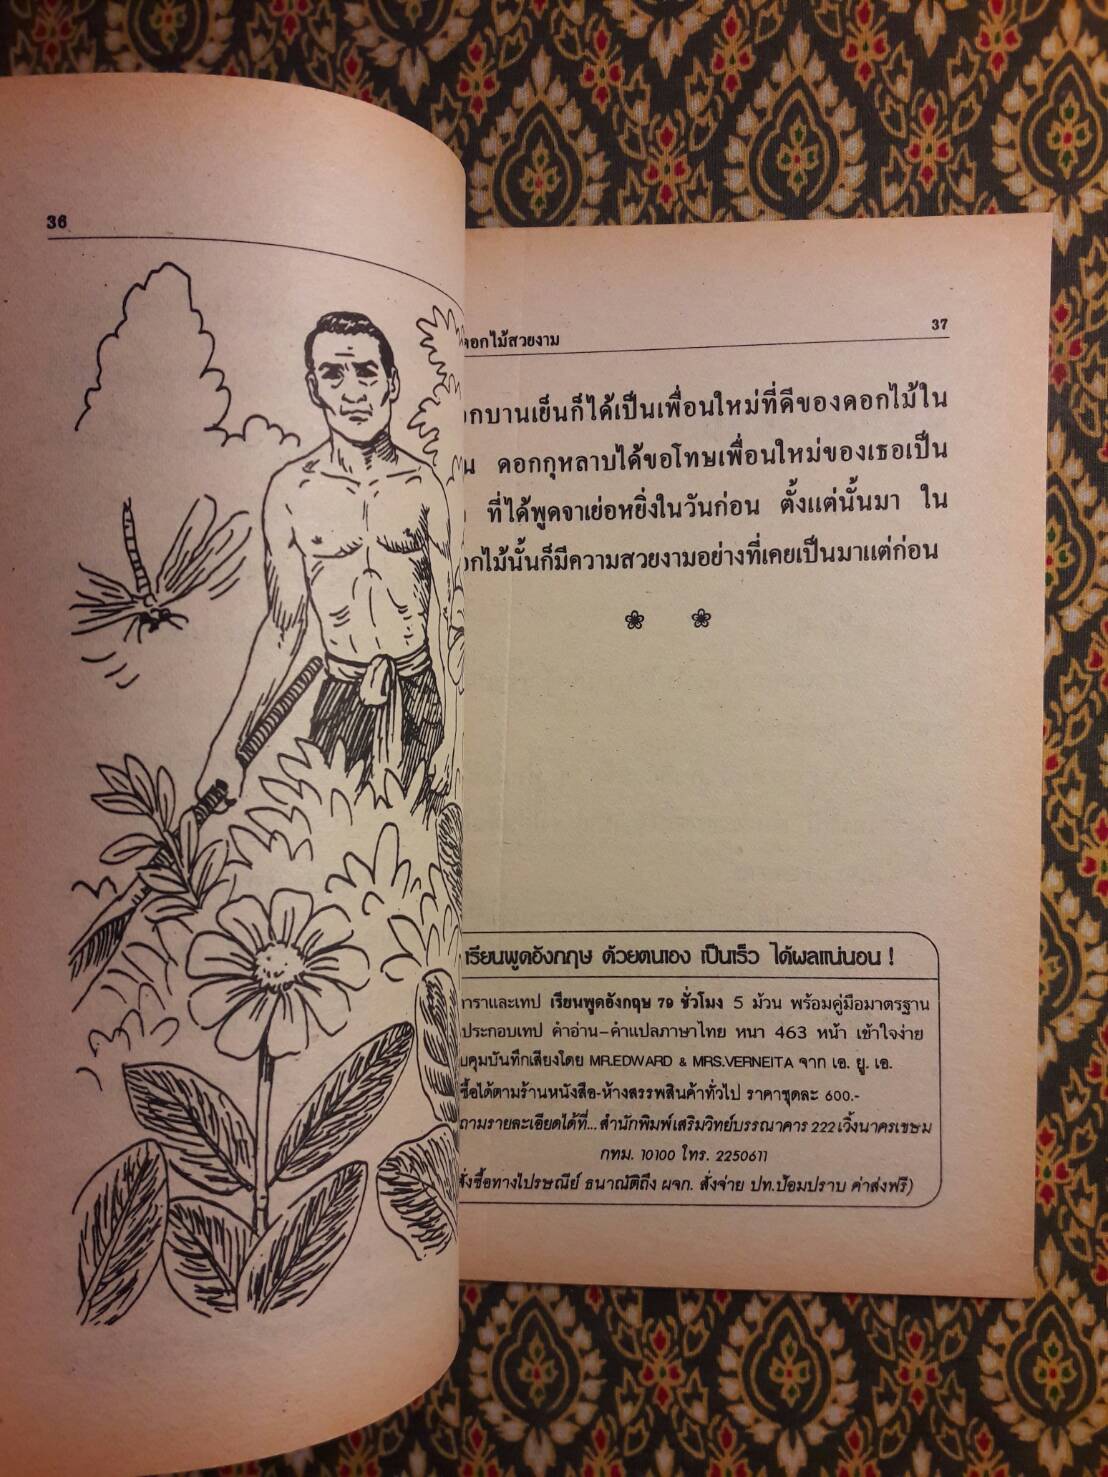 36
ดอกไม้สวยงาม
37
กบานเย็นก็ได้เป็นเพื่อนใหม่ที่ดีของดอกไม้ใน
ดอกกุหลาบได้ขอโทษเพื่อนใหม่ของเธอเป็น
ที่ได้พูดจาเย่อหยิ่งในวันก่อน ตั้งแต่นั้นมา ใน
อกไม้นั้นก็มีความสวยงามอย่างที่เคยเป็นมาแต่ก่อน
เรียนพูดอังกฤษ ด้วยตนเอง เป็นเร็ว ได้ผลแน่นอน !
ตำราและเทป เรียนพูดอังกฤษ 79 ชั่วโมง 5 ม้วน พร้อมคู่มือมาตรฐาน
ประกอบเทป คำอ่าน–คำแปลภาษาไทย หนา 463 หน้า เข้าใจง่าย
บคุมบันทึกเสียงโดย MR.EDWARD & MRS.VERNEITA จาก เอ. ยู. เอ.
ซื้อได้ตามร้านหนังสือ-ห้างสรรพสินค้าทั่วไป ราคาชุดละ 600.-
ถามรายละเอียดได้ที่... สำนักพิมพ์เสริมวิทย์บรรณาคาร 222 เวิ้งนาครเขษม
กทม. 10100 โทร. 2250611
สั่งซื้อทางไปรษณีย์ ธนาณัติถึง ผจก. สั่งจ่าย ปท.ป้อมปราบ ค่าส่งฟรี)